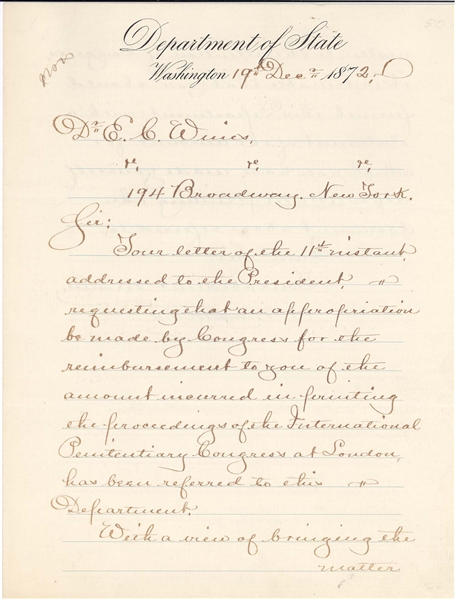 Department of State
Washington 19th Decr 1872,
Dr E. C. Wines,
&c. &c. &c.
194 Broadway. New York.
Sir:
Your letter of the 11th instant,
addressed to the President, "
requesting that an appropriation
be made by Congress for the
reimbursement to you of the
amount incurred in printing
the proceedings of the International
Penitentiary Congress at London,
has been referred to this "
Department.
With a view of bringing the
matter